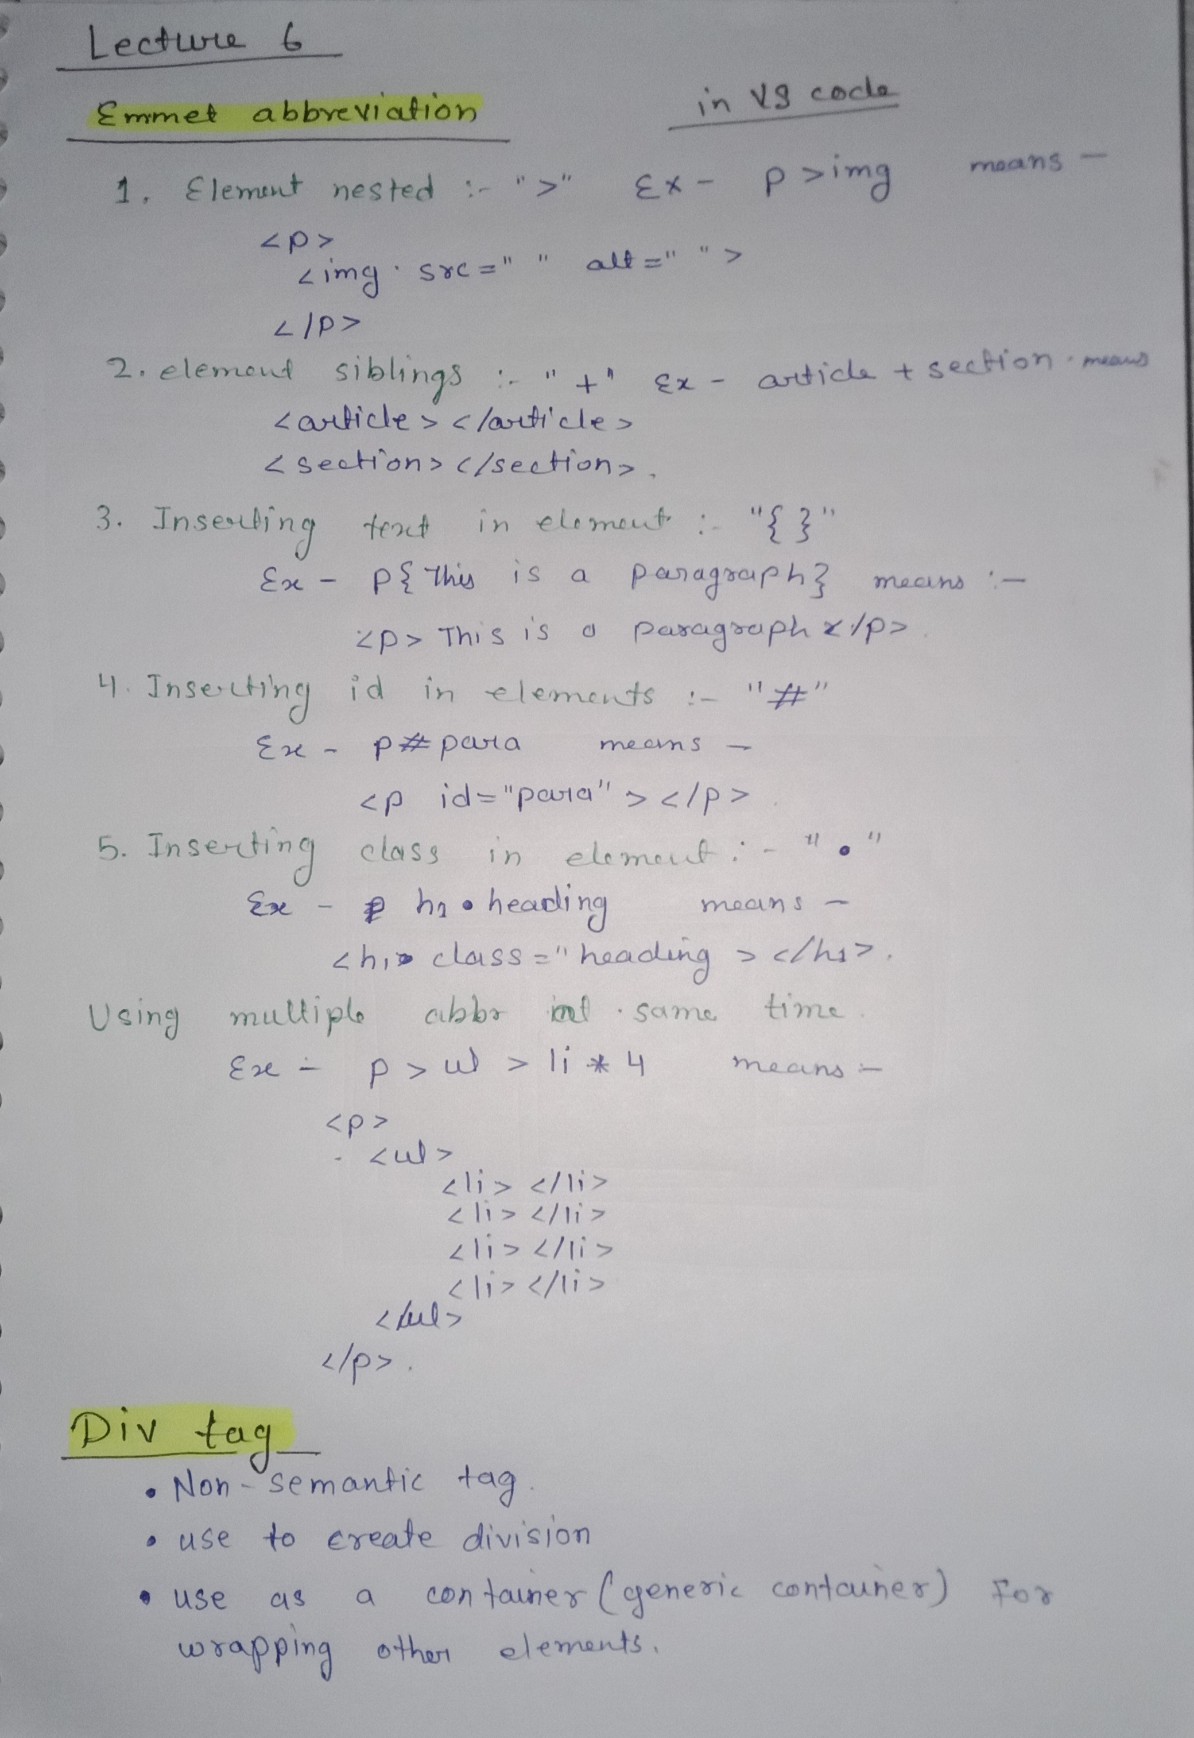 Lecture 6
Emmet abbreviation in VS code
1. Element nested :- ">" Ex - p >img means -
<p>
<img src=" " alt=" ">
</p>
2. element siblings :- "+" Ex - article + section means
<article></article>
<section></section>.
3. Inserting text in element :- "{ }"
Ex - p{ This is a paragraph} means :-
<p> This is a paragraph </p>
4. Inserting id in elements :- "#"
Ex - p#para means -
<p id="para"></p>
5. Inserting class in element :- "."
Ex - h1.heading means -
<h1 class="heading ></h1>.
Using multiple abbr at same time.
Ex - p > ul > li * 4 means :-
<p>
<ul>
<li> </li>
<li> </li>
<li> </li>
<li> </li>
</ul>
</p>.
Div tag
• Non-semantic tag.
• use to create division
• use as a container (generic container) For
wrapping other elements.